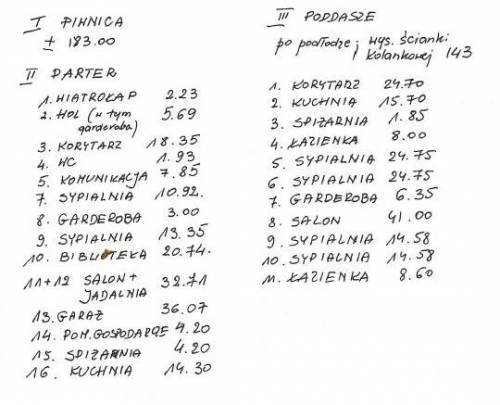 I PIWNICA
± 183.00
II PARTER
1. WIATROŁAP 2.23
2. HOL (w tym garderoba) 5.69
3. KORYTARZ 18.35
4. WC 1.93
5. KOMUNIKACJA 7.85
7. SYPIALNIA 10.92.
8. GARDEROBA 3.00
9. SYPIALNIA 13.35
10. BIBLIOTEKA 20.74.
11+12 SALON + JADALNIA 32.71
13. GARAŻ 36.07
14. POM. GOSPODARCZE 4.20
15. SPIŻARNIA 4.20
16. KUCHNIA 14.30
III PODDASZE
po podłodze; wys. ścianki kolankowej 143
1. KORYTARZ 24.70
2. KUCHNIA 15.70
3. SPIŻARNIA 1.85
4. ŁAZIENKA 8.00
5. SYPIALNIA 24.75
6. SYPIALNIA 24.75
7. GARDEROBA 6.35
8. SALON 41.00
9. SYPIALNIA 14.58
10. SYPIALNIA 14.58
11. ŁAZIENKA 8.60